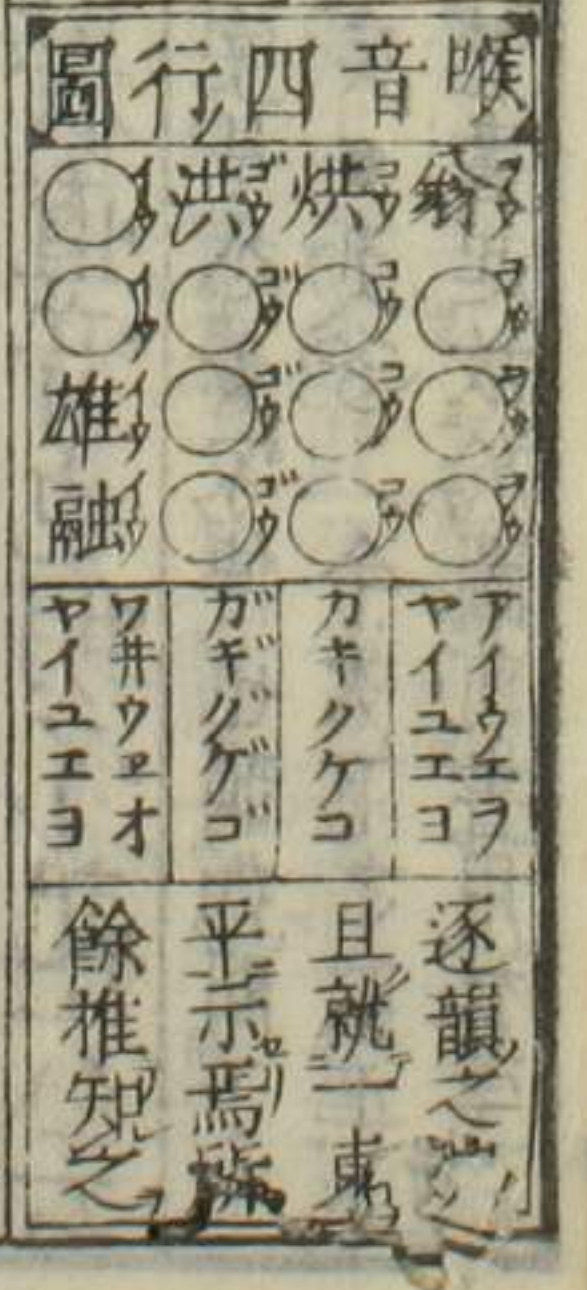 喉音四行ノ圖
翁ヲウ ○ヲウ ○ヲウ ○ヲウ
烘コウ ○コウ ○コウ ○コウ
洪ゴウ ○ゴウ ○ゴウ ○ゴウ
○イウ ○イウ 雄イウ 融イウ
アイウエヲ
ヤイユエヨ
カキクケコ
ガギグゲゴ
ワ井ウヱオ
ヤイユエヨ
逐韻ノ之
且就一東
平示焉
餘推知之